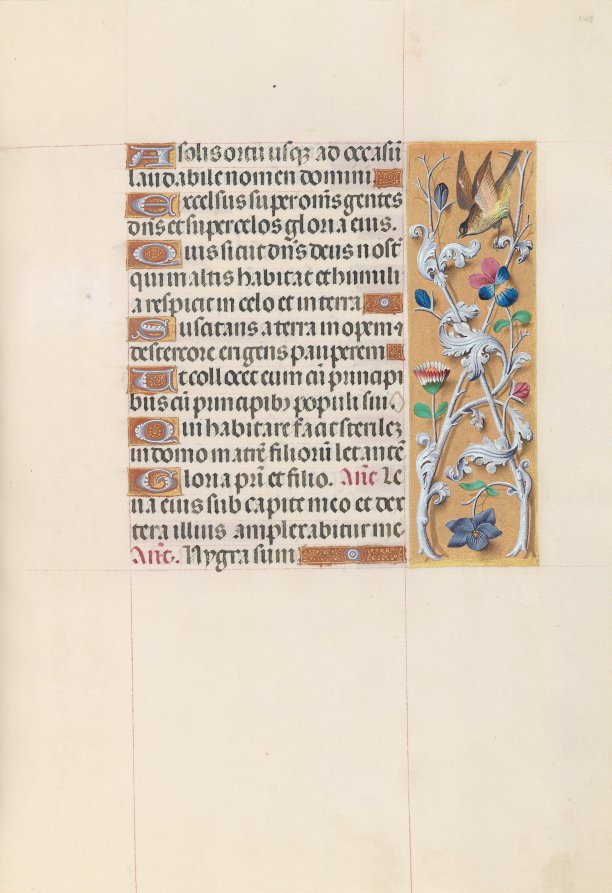 148
A solis ortu usq₃ ad occasū
laudabile nomen domini
Excelsus super om̄s gentes
dn̄s et super celos gloria eius.
Quis sicut dn̄s deus nost̄
qui in altis habitat et humili
a respicit in celo et in terra
Suscitans a terra inopem ⁊
de stercore erigens pauperem
Ut collocet eum cū principi
bus cū principibꝰ populi sui
Qui habitare facit sterilez
in domo matrē filiorū letantē
Gloria pr̄i et filio. An̄t Le
ua eius sub capite meo et dex
tera illius amplexabitur me
An̄t. Nygra sum